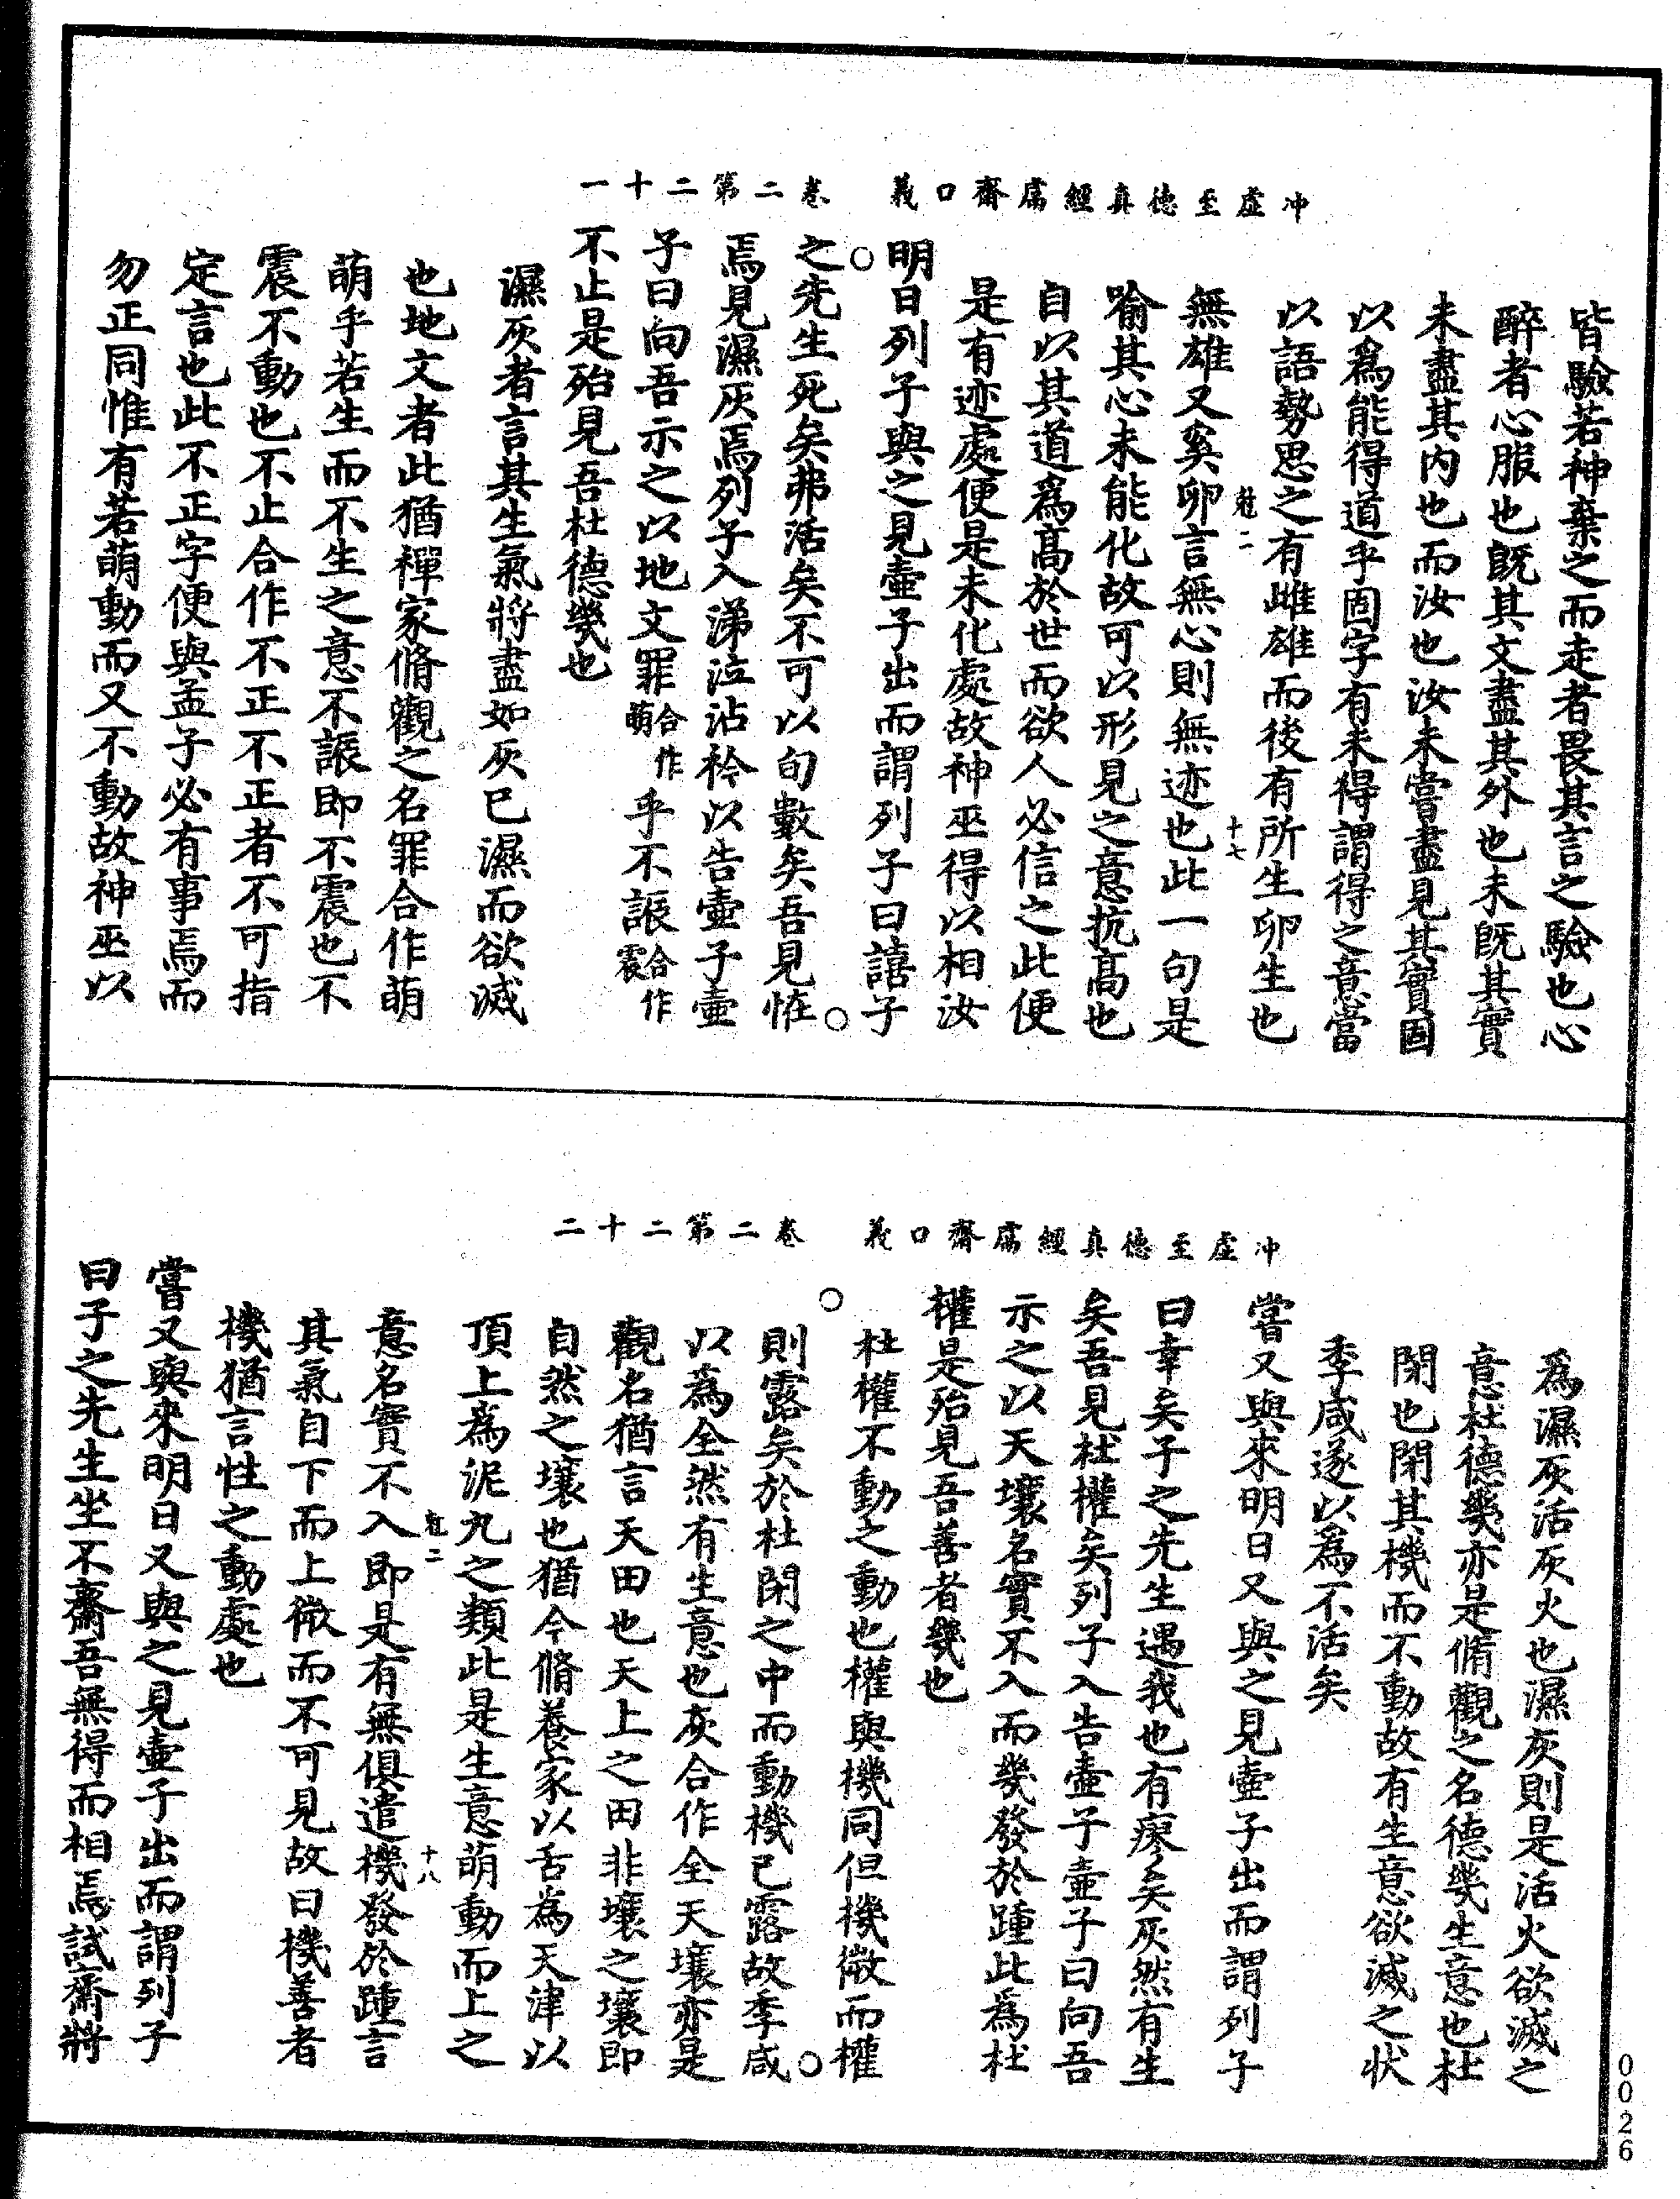 冲虛至德真經鬳齋口義　卷二第二十一
皆驗若神棄之而走者畏其言之驗也心
醉者心服也旣其文盡其外也未旣其實
未盡其內也而汝也汝未嘗盡見其實固
以爲能得道乎固字有未得謂得之意當
以語勢思之有雌雄而後有所生卵生也
二　十七
無雄又奚卵言無心則無迹也此一句是
喻其心未能化故可以形見之意抗高也
自以其道爲高於世而欲人必信之此便
是有迹處便是未化處故神巫得以相汝
明日列子與之見壺子出而謂列子曰譆子
之先生死矣弗活矣不可以旬數矣吾見怪
焉見濕灰焉列子入涕泣沾衿以告壺子壺
子曰向吾示之以地文罪合作萌乎不誫合作震
不止是殆見吾杜德幾也
濕灰者言其生氣將盡如灰已濕而欲滅
也地文者此猶禪家脩觀之名罪合作萌
萌乎若生而不生之意不誫即不震也不
震不動也不止合作不正不正者不可指
定言也此不正字便與孟子必有事焉而
勿正同惟有若萌動而又不動故神巫以
冲虛至德真經鬳齋口義　卷二第二十二
爲濕灰活灰火也濕灰則是活火欲滅之
意杜德幾亦是脩觀之名德幾生意也杜
閉也閉其機而不動故有生意欲滅之狀
季咸遂以爲不活矣
嘗又與來明日又與之見壺子出而謂列子
曰幸矣子之先生遇我也有瘳矣灰然有生
矣吾見杜權矣列子入告壺子壺子曰向吾
示之以天壤名實不入而幾發於踵此爲杜
權是殆見吾善者幾也
杜權不動之動也權與機同但機微而權
則露矣於杜閉之中而動機已露故季咸
以為全然有生意也灰合作全天壤亦是
觀名猶言天田也天上之田非壤之壤即
自然之壤也猶今脩養家以舌為天津以
頂上為泥丸之類此是生意萌動而上之
二　十八
意名實不入即是有無俱遣機發於踵言
其氣自下而上微而不可見故曰機善者
機猶言性之動處也
嘗又與來明日又與之見壺子出而謂列子
曰子之先生坐不齋吾無得而相焉試齋將
0026